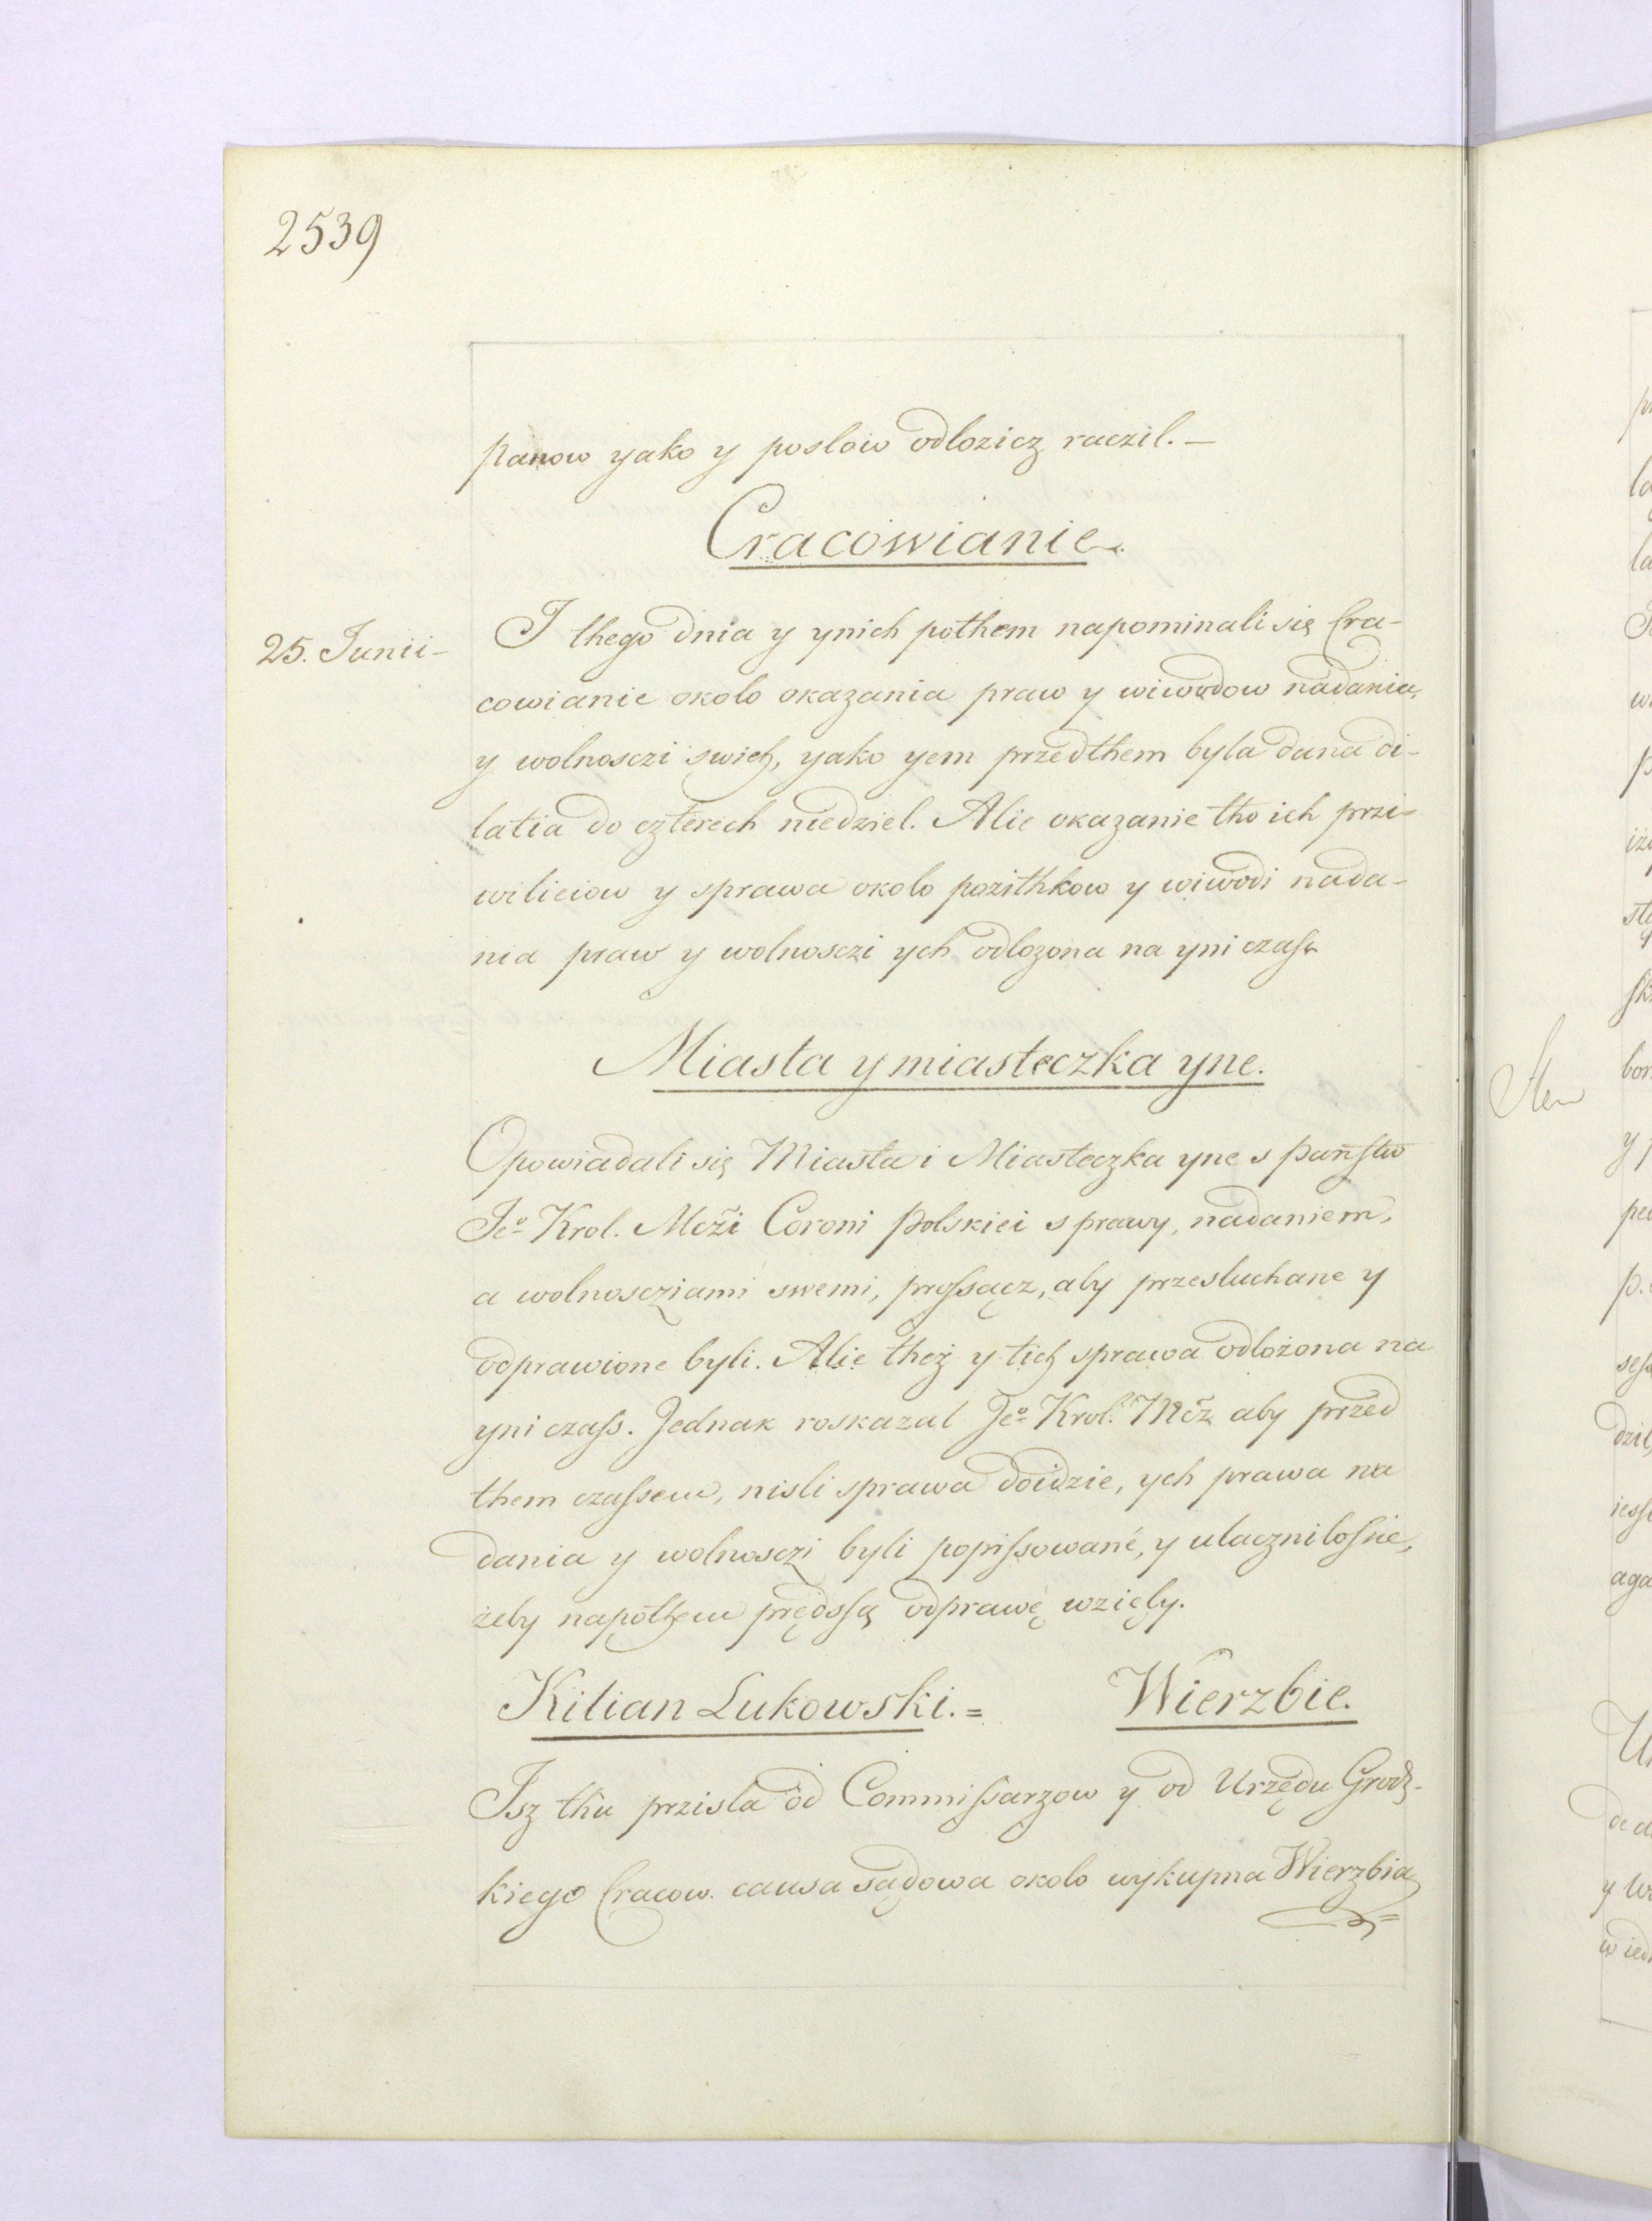 2539
panow yako y poslow odlozicz raczil. —
Cracowianie.
25. Junii —
I thego dnia y ynich pothem napominali się Cra-
cowianie okolo okazania praw y wiwodow nadania,
y wolnosczi swich, yako yem przedthem byla dana di-
latia do czterech niedziel. Alie okazanie tho ich przi-
wilieiow y sprawa okolo pozithkow y wiwodi nada-
nia praw y wolnosczi ych odlozona na yni czass
Miasta y miasteczka yne.
Opowiadali się Miasta i Miasteczka yne s Państw
Je⁰ Krol. Mczi Coroni Polskiei s prawy, nadaniem,
a wolnoscziami swemi, prossącz, aby przesluchane y
odprawione byli. Alie theż y tich sprawa odlożona na
yni czass. Jednak roskazal Je⁰ Krol. Mcz aby przed
them czassem, nisli sprawa doidzie, ych prawa na
dania y wolnosczi byli popissowané, y ulacznilossie,
żeby napothem prędssą odprawę wzięly.
Kilian Lukowski. = Wierzbie.
Isz thu przisla od Commissarzow y od Urzędu Grodz-
kiego Cracow. causa sądowa okolo wykupna Wierzbia